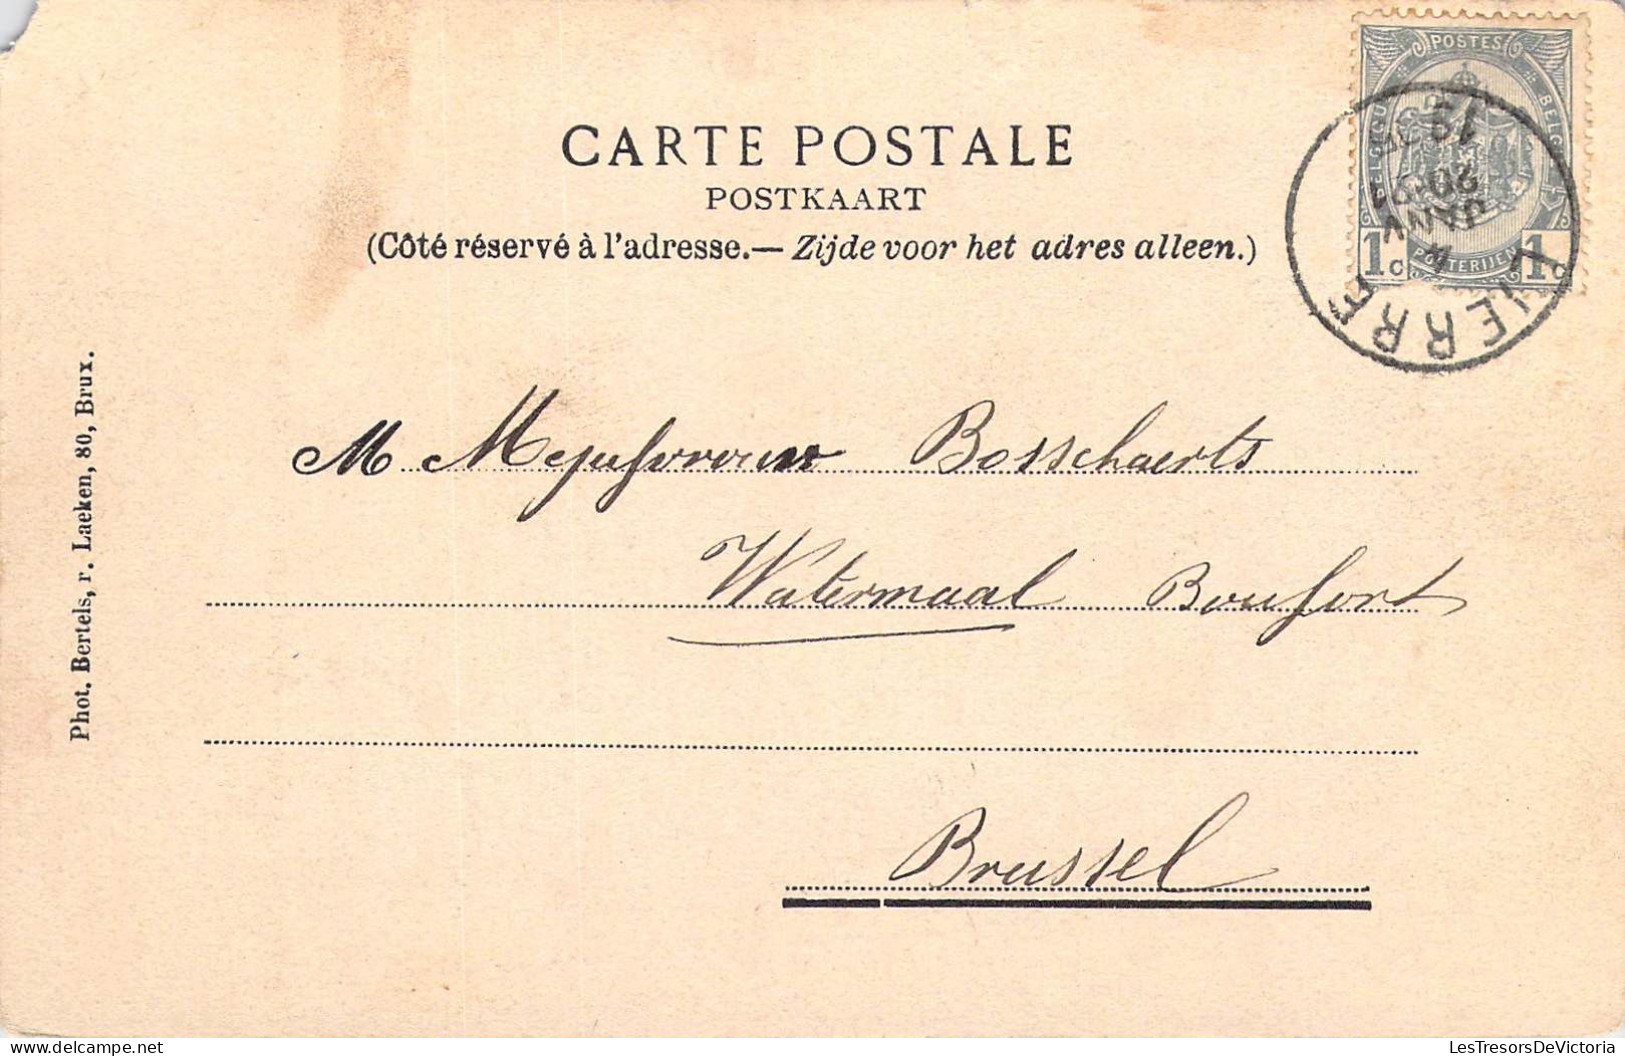 CARTE POSTALE
POSTKAART
(Côté réservé à l'adresse.— Zijde voor het adres alleen.)
POSTES
1c POSTERIJEN 1c
LIERRE
4
JANV
M Mejufvrouw Bosschaerts
Watermaal Boufort
Brussel
Phot. Bertels, r. Laeken, 80, Brux.
LesTresorsDeVictoria
www.delcampe.net